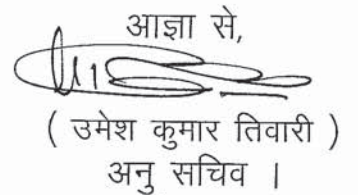 आज्ञा से,
( उमेश कुमार तिवारी )
अनु सचिव ।